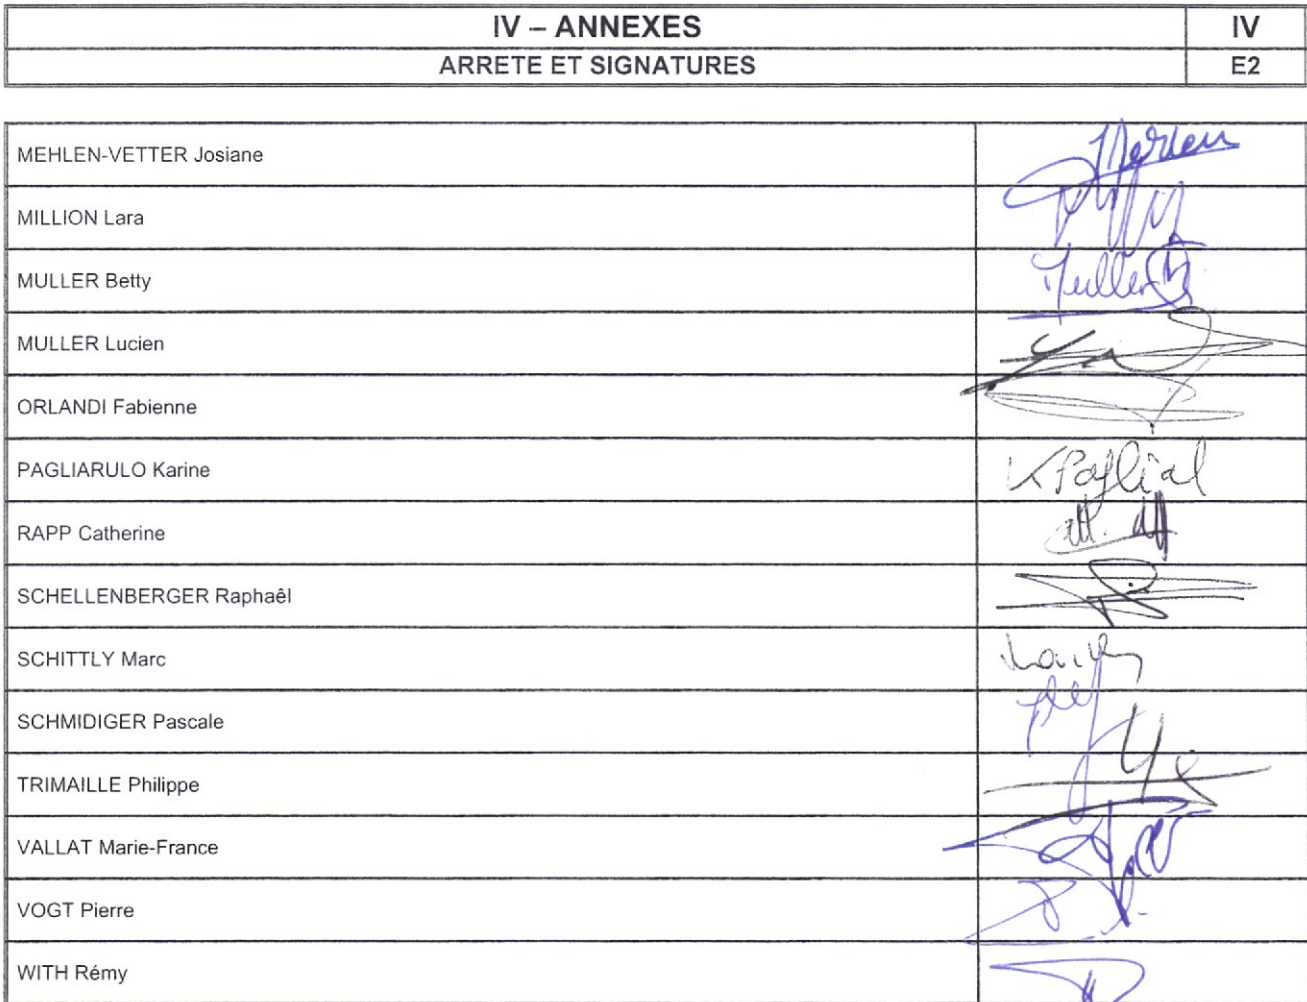 IV – ANNEXES IV
ARRETE ET SIGNATURES E2
MEHLEN-VETTER Josiane
MILLION Lara
MULLER Betty Muller
MULLER Lucien
ORLANDI Fabienne
PAGLIARULO Karine
RAPP Catherine
SCHELLENBERGER Raphaêl
SCHITTLY Marc
SCHMIDIGER Pascale
TRIMAILLE Philippe
VALLAT Marie-France
VOGT Pierre
WITH Rémy